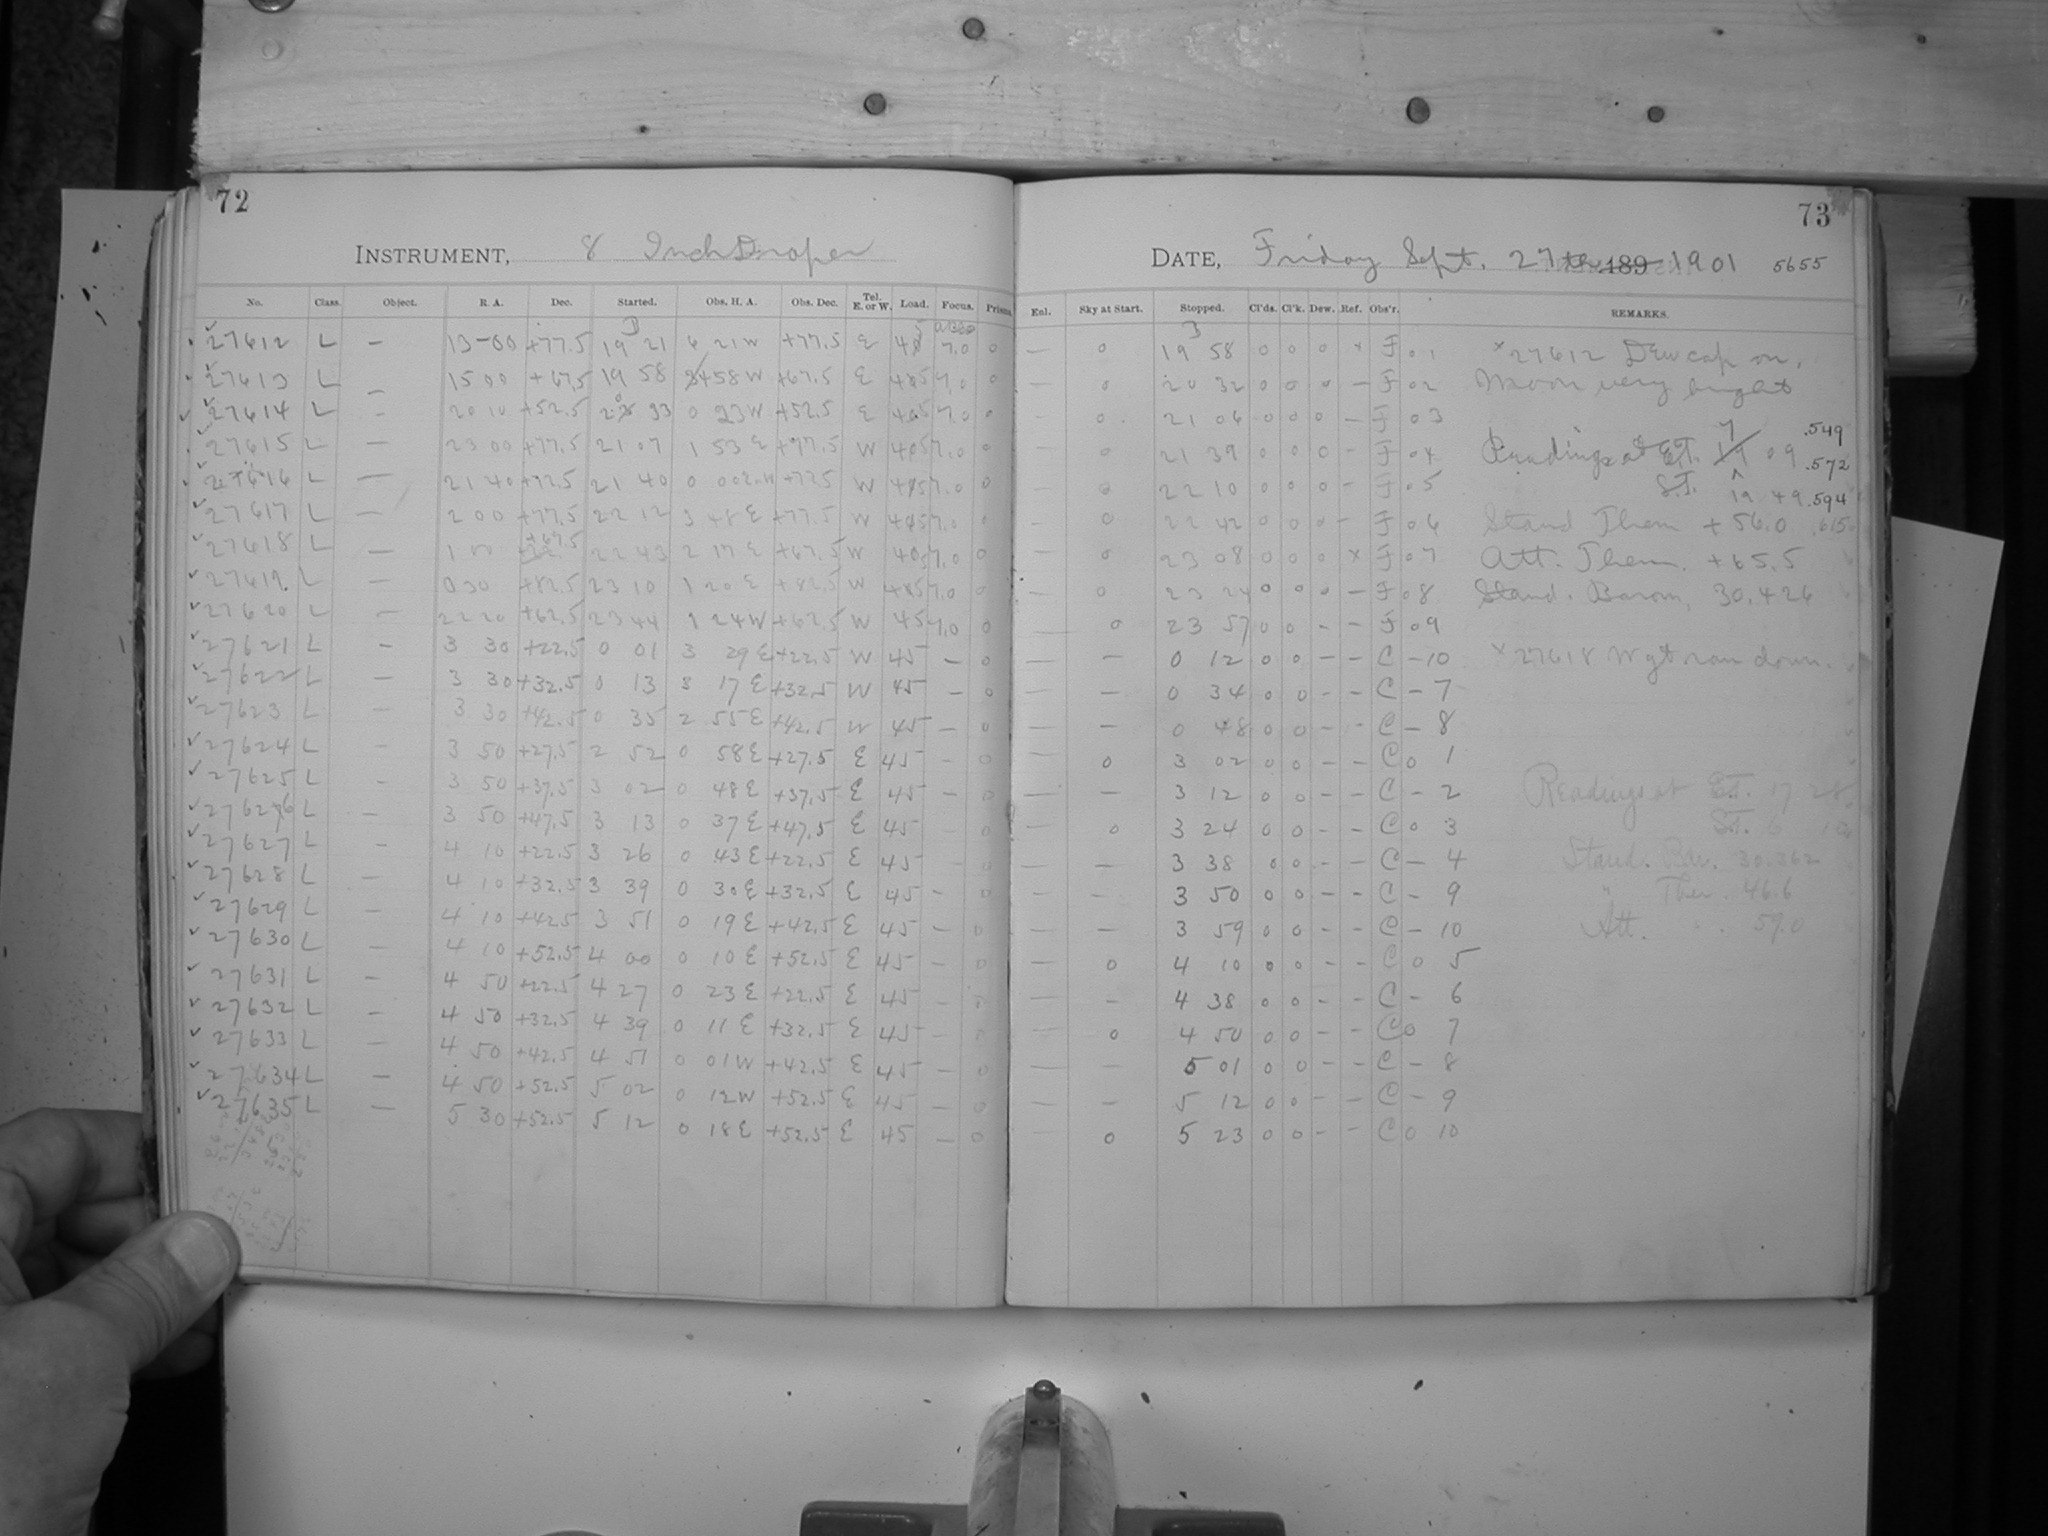 72
INSTRUMENT, 8 Inch Draper
No. Class. Object. R. A. Dec. Started. Obs. H. A. Obs. Dec. Tel. E. or W. Load. Focus. Prism.
27612 L — 13 00 +77.5 19 21 6 21 W +77.5 E 45 7.0 0
27613 L — 15 00 +67.5 19 58 4 58 W +67.5 E 45 7.0 0
27614 L — 20 10 +52.5 20 33 0 23 W +52.5 E 45 7.0 0
27615 L — 23 00 +77.5 21 07 1 53 E +77.5 W 45 7.0 0
27616 L — 21 40 +72.5 21 40 0 00 W +72.5 W 45 7.0 0
27617 L — 2 00 +77.5 22 12 3 48 E +77.5 W 45 7.0 0
27618 L — 1 00 +67.5 22 43 2 17 E +67.5 W 45 7.0 0
27619 L — 0 30 +82.5 23 10 1 20 E +82.5 W 45 7.0 0
27620 L — 22 20 +62.5 23 44 1 24 W +62.5 W 45 7.0 0
27621 L — 3 30 +22.5 0 01 3 29 E +22.5 W 45 — 0
27622 L — 3 30 +32.5 0 13 3 17 E +32.5 W 45 — 0
27623 L — 3 30 +42.5 0 35 2 55 E +42.5 W 45 — 0
27624 L — 3 50 +27.5 2 52 0 58 E +27.5 E 45 — 0
27625 L — 3 50 +37.5 3 02 0 48 E +37.5 E 45 — 0
27626 L — 3 50 +47.5 3 13 0 37 E +47.5 E 45 — 0
27627 L — 4 10 +22.5 3 26 0 43 E +22.5 E 45 — 0
27628 L — 4 10 +32.5 3 39 0 30 E +32.5 E 45 — 0
27629 L — 4 10 +42.5 3 51 0 19 E +42.5 E 45 — 0
27630 L — 4 10 +52.5 4 00 0 10 E +52.5 E 45 — 0
27631 L — 4 50 +22.5 4 27 0 23 E +22.5 E 45 — 0
27632 L — 4 50 +32.5 4 39 0 11 E +32.5 E 45 — 0
27633 L — 4 50 +42.5 4 51 0 01 W +42.5 E 45 — 0
27634 L — 4 50 +52.5 5 02 0 12 W +52.5 E 45 — 0
27635 L — 5 30 +52.5 5 12 0 18 E +52.5 E 45 — 0
73
DATE, Friday Sept. 27th 189 1901 5655
Enl. Sky at Start. Stopped. Cl'ds. Cl'k. Dew. Ref. Obs'r. REMARKS.
— 0 19 58 0 0 0 x F 0 1 x 27612 Dewcap on.
— 0 20 32 0 0 0 — F 0 2 Moon very bright
— 0 21 06 0 0 0 — F 0 3
— 0 21 39 0 0 0 — F 0 4 Readings at E.T. 7 09 .549
.572
— 0 22 10 0 0 0 — F 0 5 S.T. 19 49 .594
— 0 22 42 0 0 0 — F 0 6 Stand Therm +56.0 .615
— 0 23 08 0 0 0 x F 0 7 Att. Therm. +65.5
— 0 23 24 0 0 0 — F 0 8 Stand. Barom. 30.426
— 0 23 57 0 0 — — F 0 9
— — 0 12 0 0 — — C — 10 x 27618 Wgt ran down.
— — 0 34 0 0 — — C — 7
— — 0 48 0 0 — — C — 8
— 0 3 02 0 0 — — C 0 1
— — 3 12 0 0 — — C — 2 Readings at E.T. 17 28
— 0 3 24 0 0 — — C 0 3 S.T. 6 10
— — 3 38 0 0 — — C — 4 Stand. Bar. 30.362
— — 3 50 0 0 — — C — 9 " Ther. 46.6
— — 3 59 0 0 — — C — 10 Att. " 59.0
— 0 4 10 0 0 — — C 0 5
— — 4 38 0 0 — — C — 6
— 0 4 50 0 0 — — C 0 7
— — 5 01 0 0 — — C — 8
— — 5 12 0 0 — — C — 9
— 0 5 23 0 0 — — C 0 10